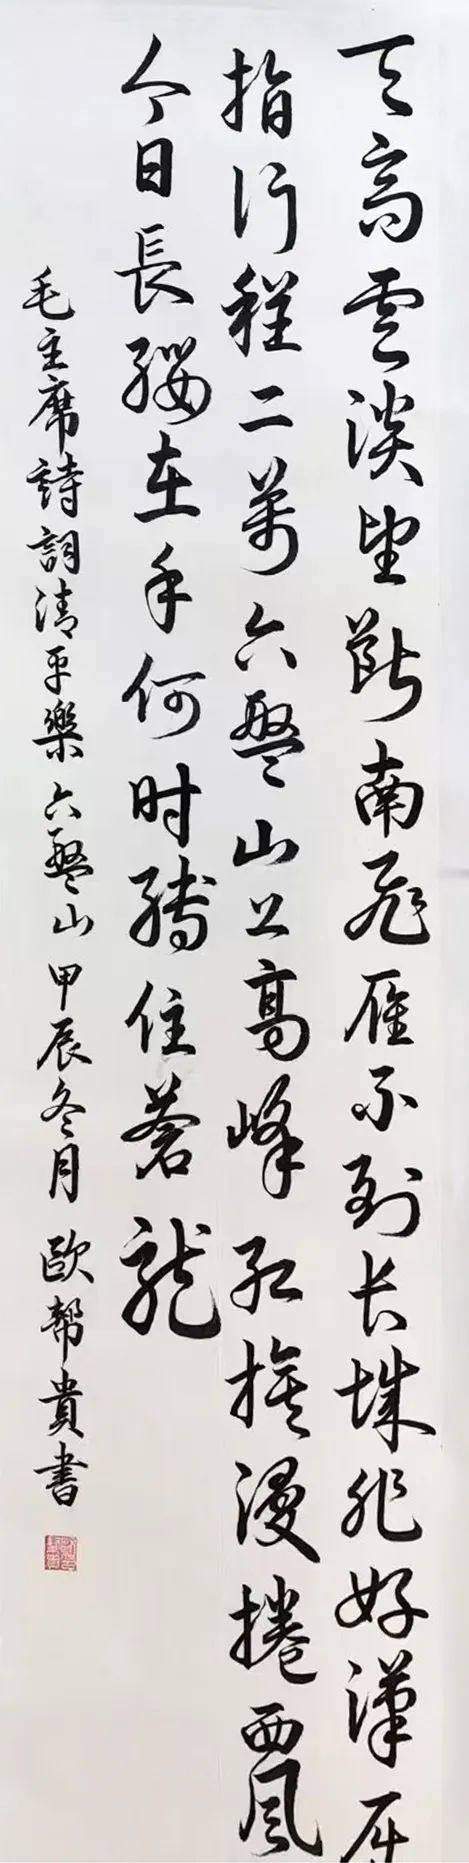 天高雲淡望断南飛雁不到长城非好漢屈
指行程二萬六盤山上高峰红旗漫捲西風
今日長纓在手何时縛住蒼龍
毛主席詩詞清平樂六盤山甲辰冬月歐幫貴書